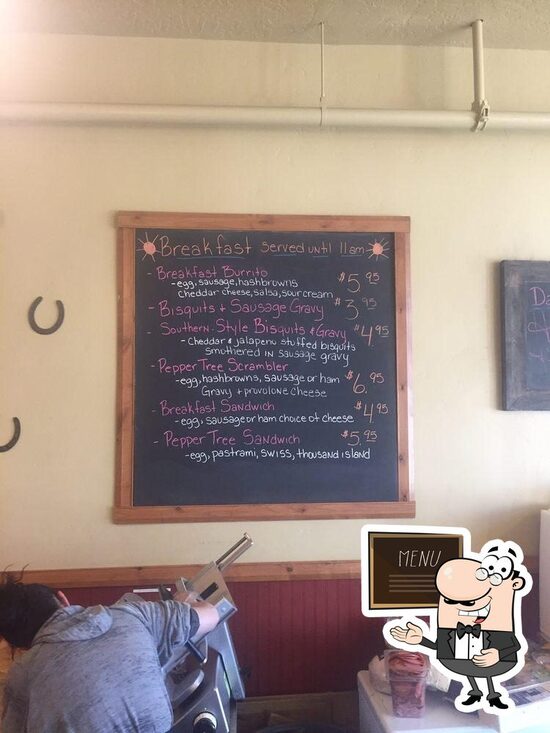 Breakfast served until 11am
- Breakfast Burrito $5.95
- egg, sausage, hashbrowns
cheddar cheese, salsa, sour cream
- Bisquits + Sausage Gravy $3.95
- Southern-Style Bisquits & Gravy $4.95
- cheddar & jalapeno stuffed bisquits
smothered in sausage gravy
- Pepper Tree Scrambler
- egg, hashbrowns, sausage or ham $6.95
Gravy + provolone cheese
- Breakfast Sandwich $4.95
- egg, sausage or ham choice of cheese
- Pepper Tree Sandwich $5.95
- egg, pastrami, swiss, thousand island
MENU